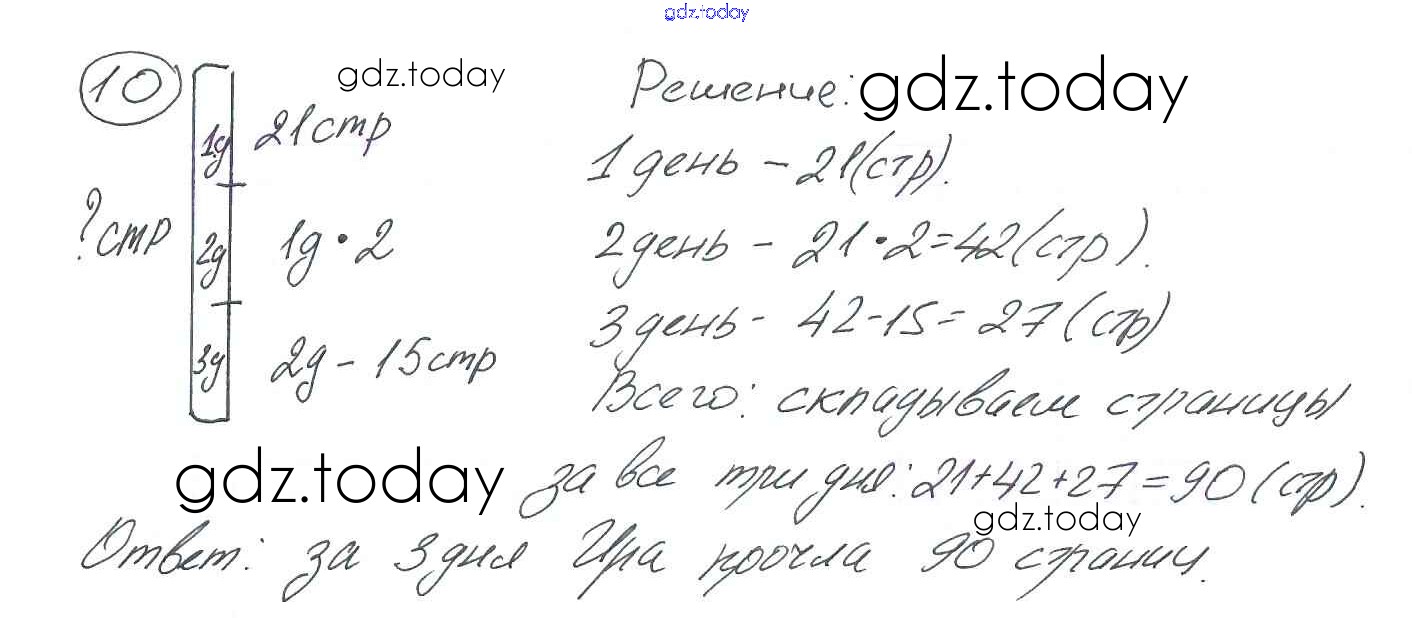 gdz.today
10
gdz.today
Решение: gdz.today
1д 21стр
1 день - 21(стр).
?стр 2д 1д • 2
2 день - 21 • 2=42(стр).
3д 2д - 15стр
3 день - 42-15= 27(стр)
Всего: складываем страницы
gdz.today за все три дня: 21+42+27=90(стр).
gdz.today
Ответ: за 3 дня Ира прочла 90 страниц.